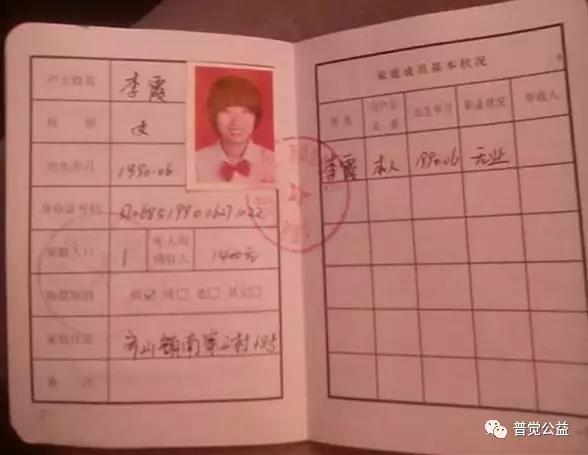 户主姓名 李霞
性别 女
出生年月 1990.06
身份证号码 370685199006271022
家庭人口 1 年人均纯收入 1400元
致贫原因 病☑ 残□ 老□ 其它□
家庭住址 齐山镇南
备注
家庭成员基本状况
姓名 与户主关系 出生年月 职业状况 年收入
李霞 本人 1990.06 无业
普觉公益